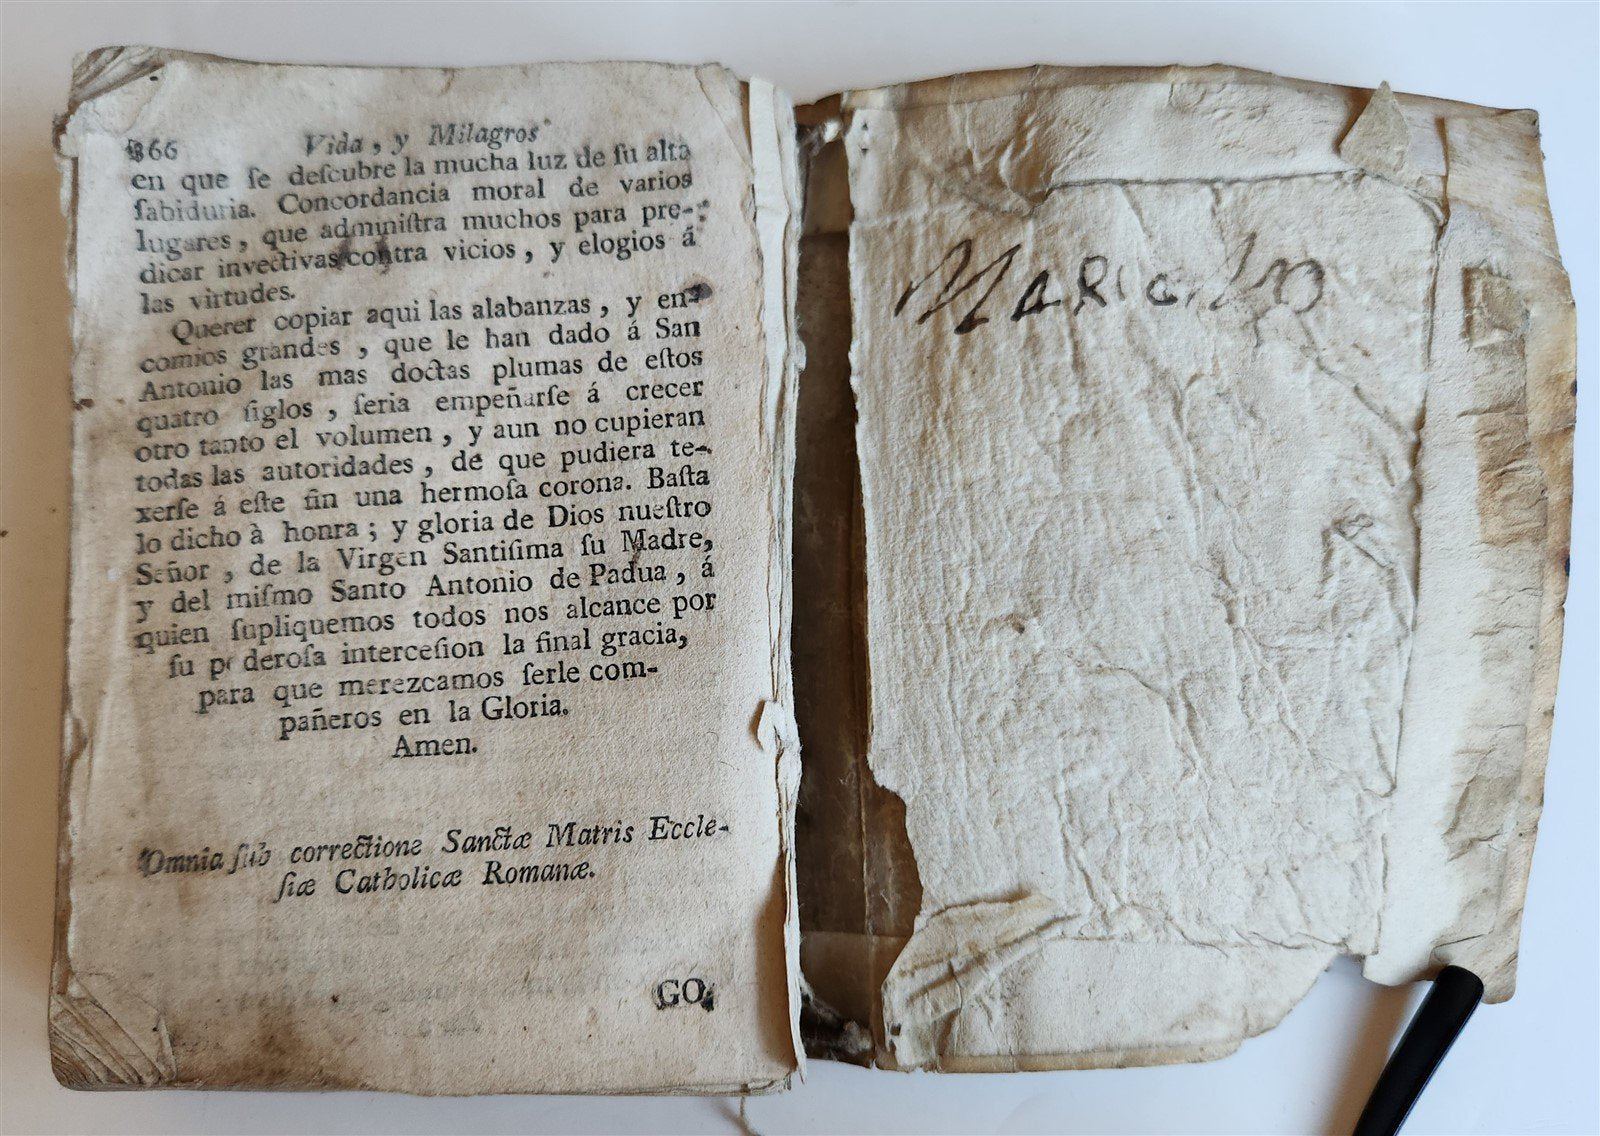 366 Vida, y Milagros
en que ſe deſcubre la mucha luz de ſu alta
ſabiduria. Concordancia moral de varios
lugares, que adminiſtra muchos para pre-
dicar invectivas contra vicios, y elogios á
las virtudes.
Querer copiar aqui las alabanzas, y en-
comios grandes, que le han dado á San
Antonio las mas doctas plumas de eſtos
quatro ſiglos, ſeria empeñarſe á crecer
otro tanto el volumen, y aun no cupieran
todas las autoridades, de que pudiera te-
xerſe á eſte fin una hermoſa corona. Baſta
lo dicho à honra; y gloria de Dios nueſtro
Señor, de la Virgen Santiſima ſu Madre,
y del miſmo Santo Antonio de Padua, á
quien ſupliquemos todos nos alcance por
ſu poderoſa interceſion la final gracia,
para que merezcamos ſerle com-
pañeros en la Gloria.
Amen.
Omnia ſub correctione Sanctæ Matris Eccle-
ſiæ Catholicæ Romanæ.
GO